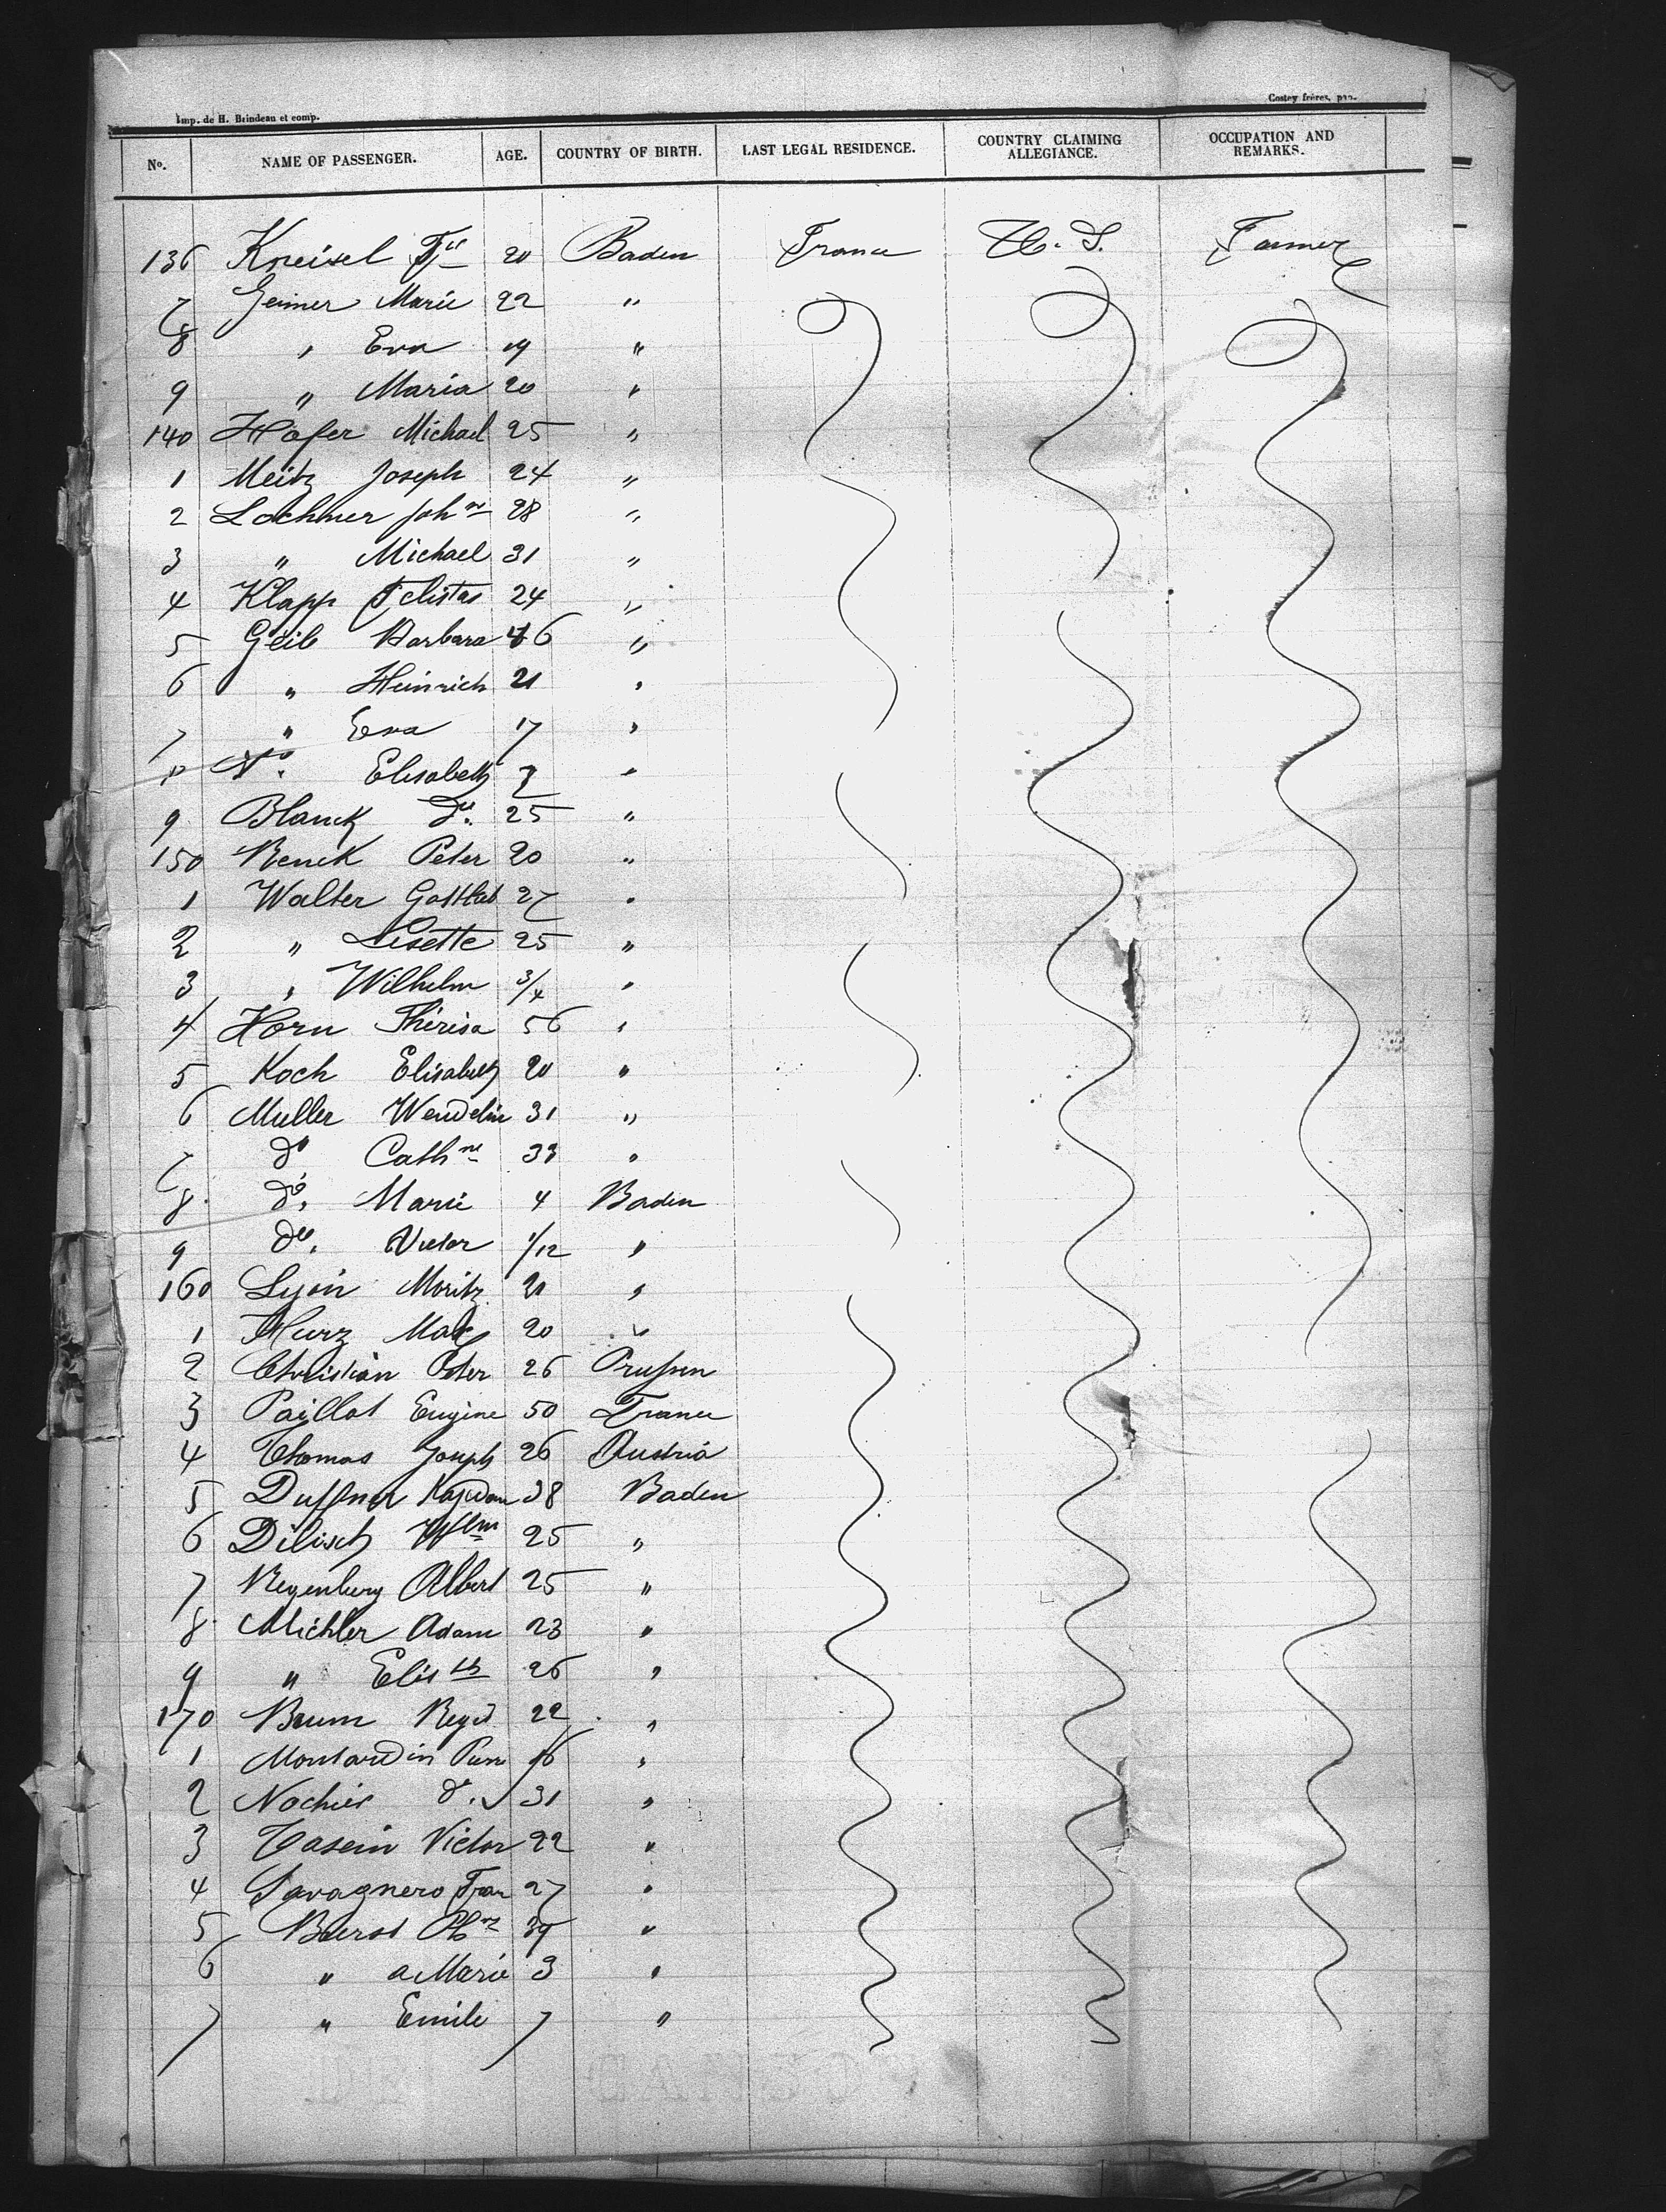 Imp. de H. Brindeau et comp.
Costey frères, pap.
No. NAME OF PASSENGER. AGE. COUNTRY OF BIRTH. LAST LEGAL RESIDENCE. COUNTRY CLAIMING ALLEGIANCE. OCCUPATION AND REMARKS.
136 Kneisel 20 Baden France U. S. Farmer
7 Geimer Marie 22 "
8 " Eva 19 "
9 " Maria 20 "
140 Hofer Michael 25 "
1 Meitz Joseph 24 "
2 Lochner Johnn 28 "
3 " Michael 31 "
4 Klapp Felistas 24 "
5 Geib Barbara 46 "
6 " Heinrich 21 "
7 " Eva 17 "
8 Elisabeth 7 "
9 Blanck do. 25 "
150 Renck Peter 20 "
1 Walter Gottlieb 27 "
2 " Lisette 25 "
3 " Wilhelm 3/4 "
4 Horn Thérisa 56 "
5 Koch Elisabeth 20 "
6 Muller Wendelin 31 "
7 do Cathne 33 "
8 do. Marie 4 Baden
9 do. Victor 1/12 "
160 Lyon Moritz 21 "
1 Max 20 "
2 Christian Peter 26 Prussen
3 Paillot Eugène 50 France
4 Thomas Joseph 26 Austria
5 Duffner 38 Baden
6 Dilisch Wilm 25 "
7 Regenburg Albert 25 "
8 Michler Adam 23 "
9 " Elisth 26 "
170 22 "
1 Montardin 16 "
2 Nochier do. 31 "
3 Casein Victor 22 "
4 Savagnero Fran 27 "
5 39 "
6 " a Marie 3 "
7 " Emile 7 "